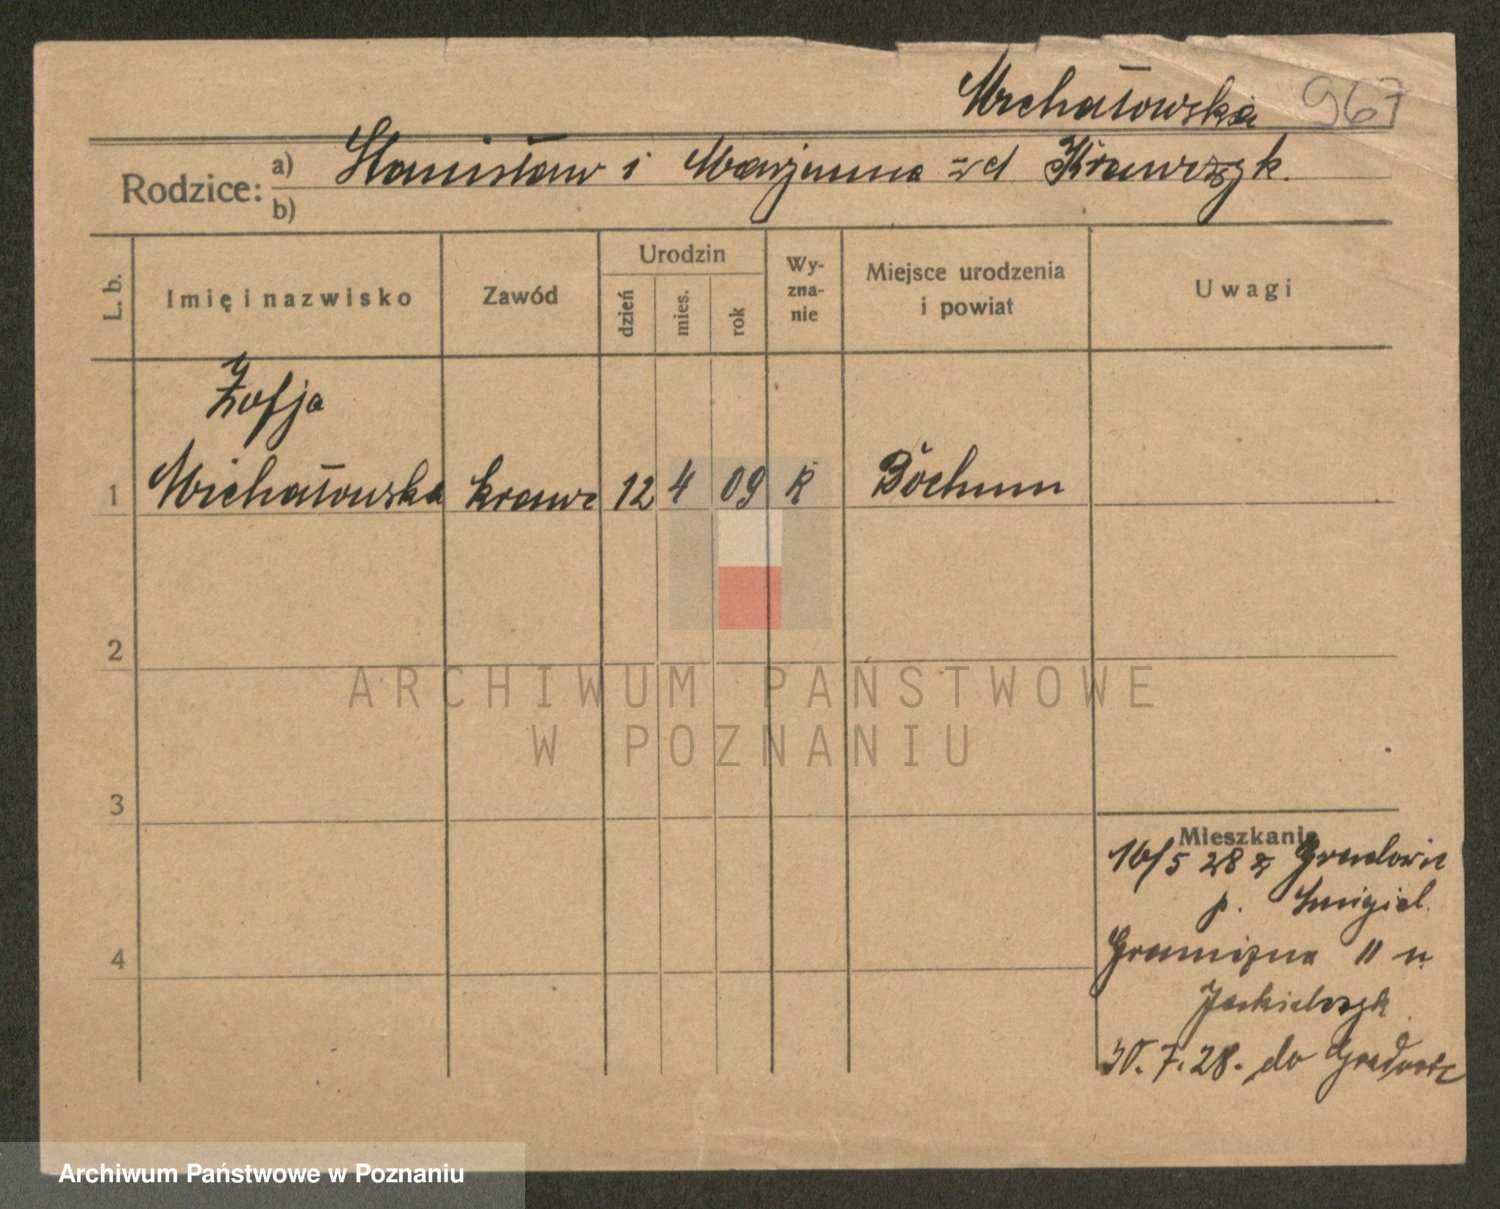 Michałowska 967
Rodzice:
a) Stanisław i Marjanna zd Krawczyk.
b)
L. b.
Imię i nazwisko
Zawód
Urodzin
dzień
mies.
rok
Wy-
zna-
nie
Miejsce urodzenia
i powiat
Uwagi
Zofja
1 Michałowska krawc 12 4 09 R Bochum
2
3
4
Mieszkanie
16/5 28 z
p. Śmigiel.
Graniczna 11 u
30.7.28. do
ARCHIWUM PAŃSTWOWE
W POZNANIU
Archiwum Państwowe w Poznaniu